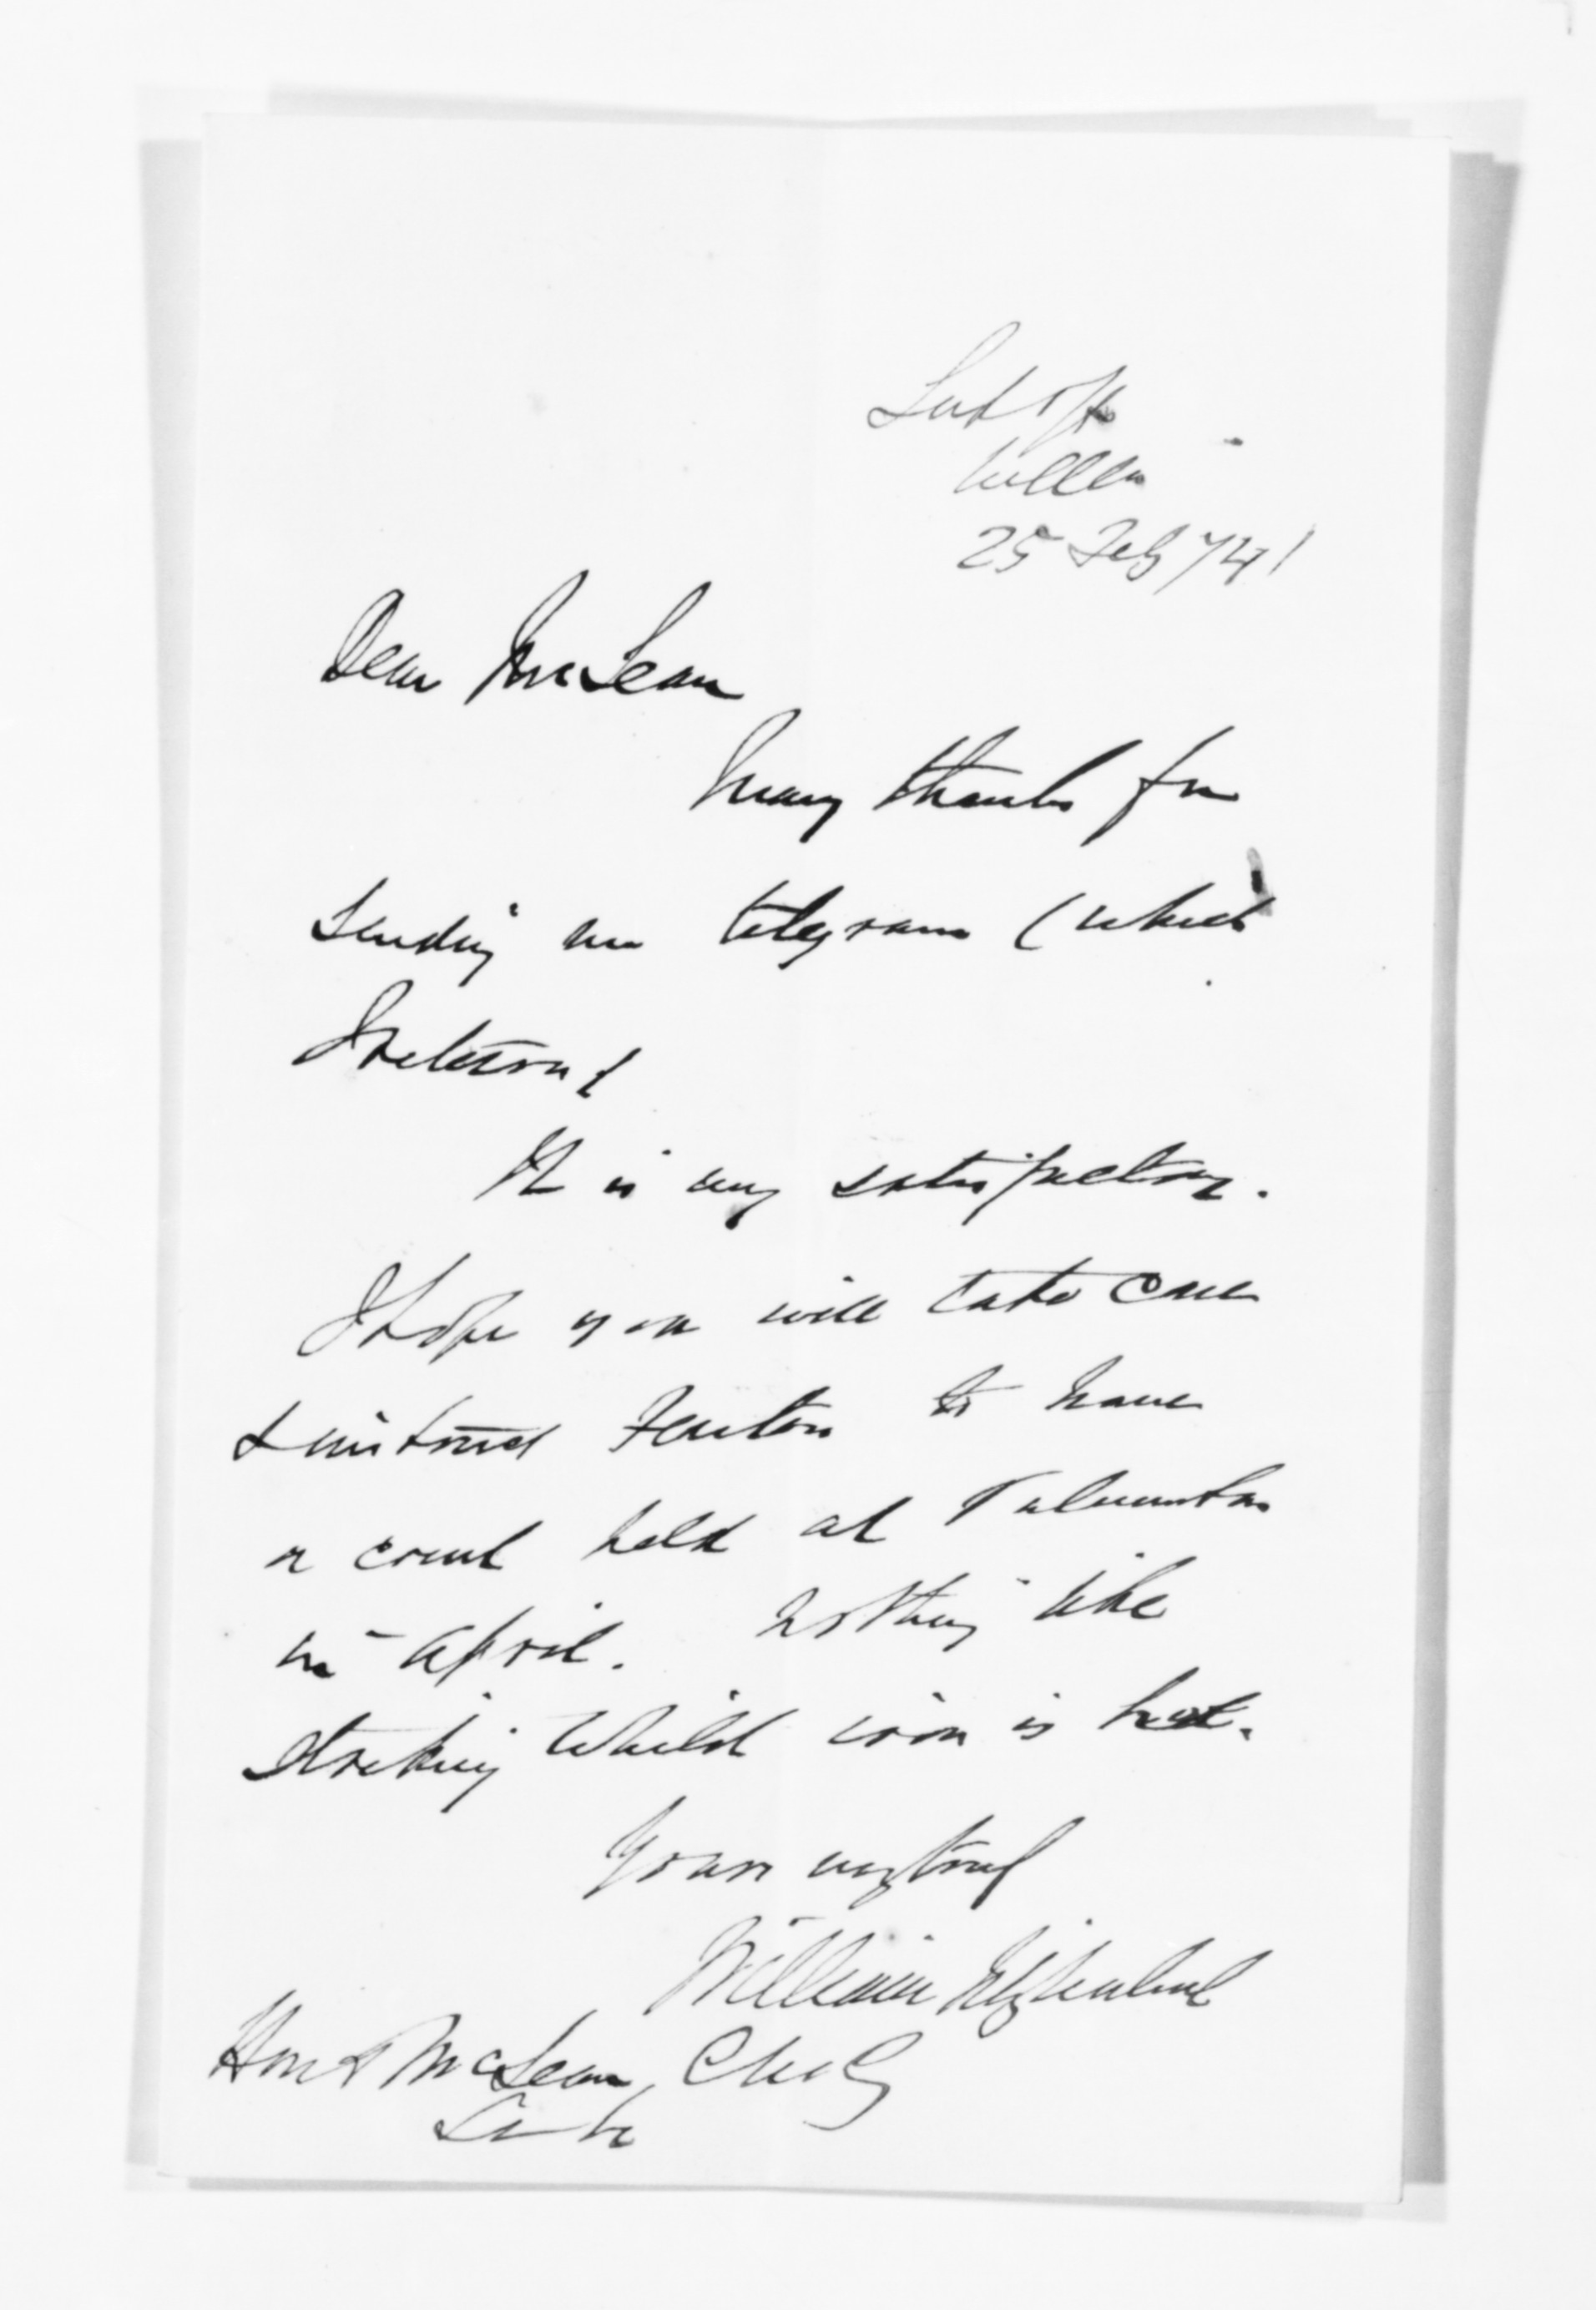 25 Feby 74
Dear McLean
Many thanks for
sending me telegram (which
I return)
It is very satisfactory.
I hope you will take care
& instruct Fenton to have
a court held at
in April. Nothing like
striking whilst iron is hot.
Yours very truly
William
Hon D McLean